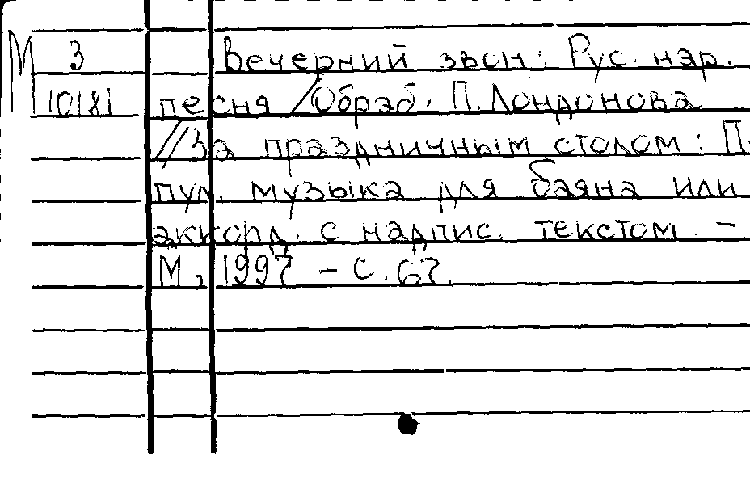 М 3 Вечерний звон: Рус. нар.
10181 песня /Обраб. П. Лондонова
//За праздничным столом: П
пул. музыка для баяна или
аккорд. с надпис. текстом. -
М, 1997 - с. 67.